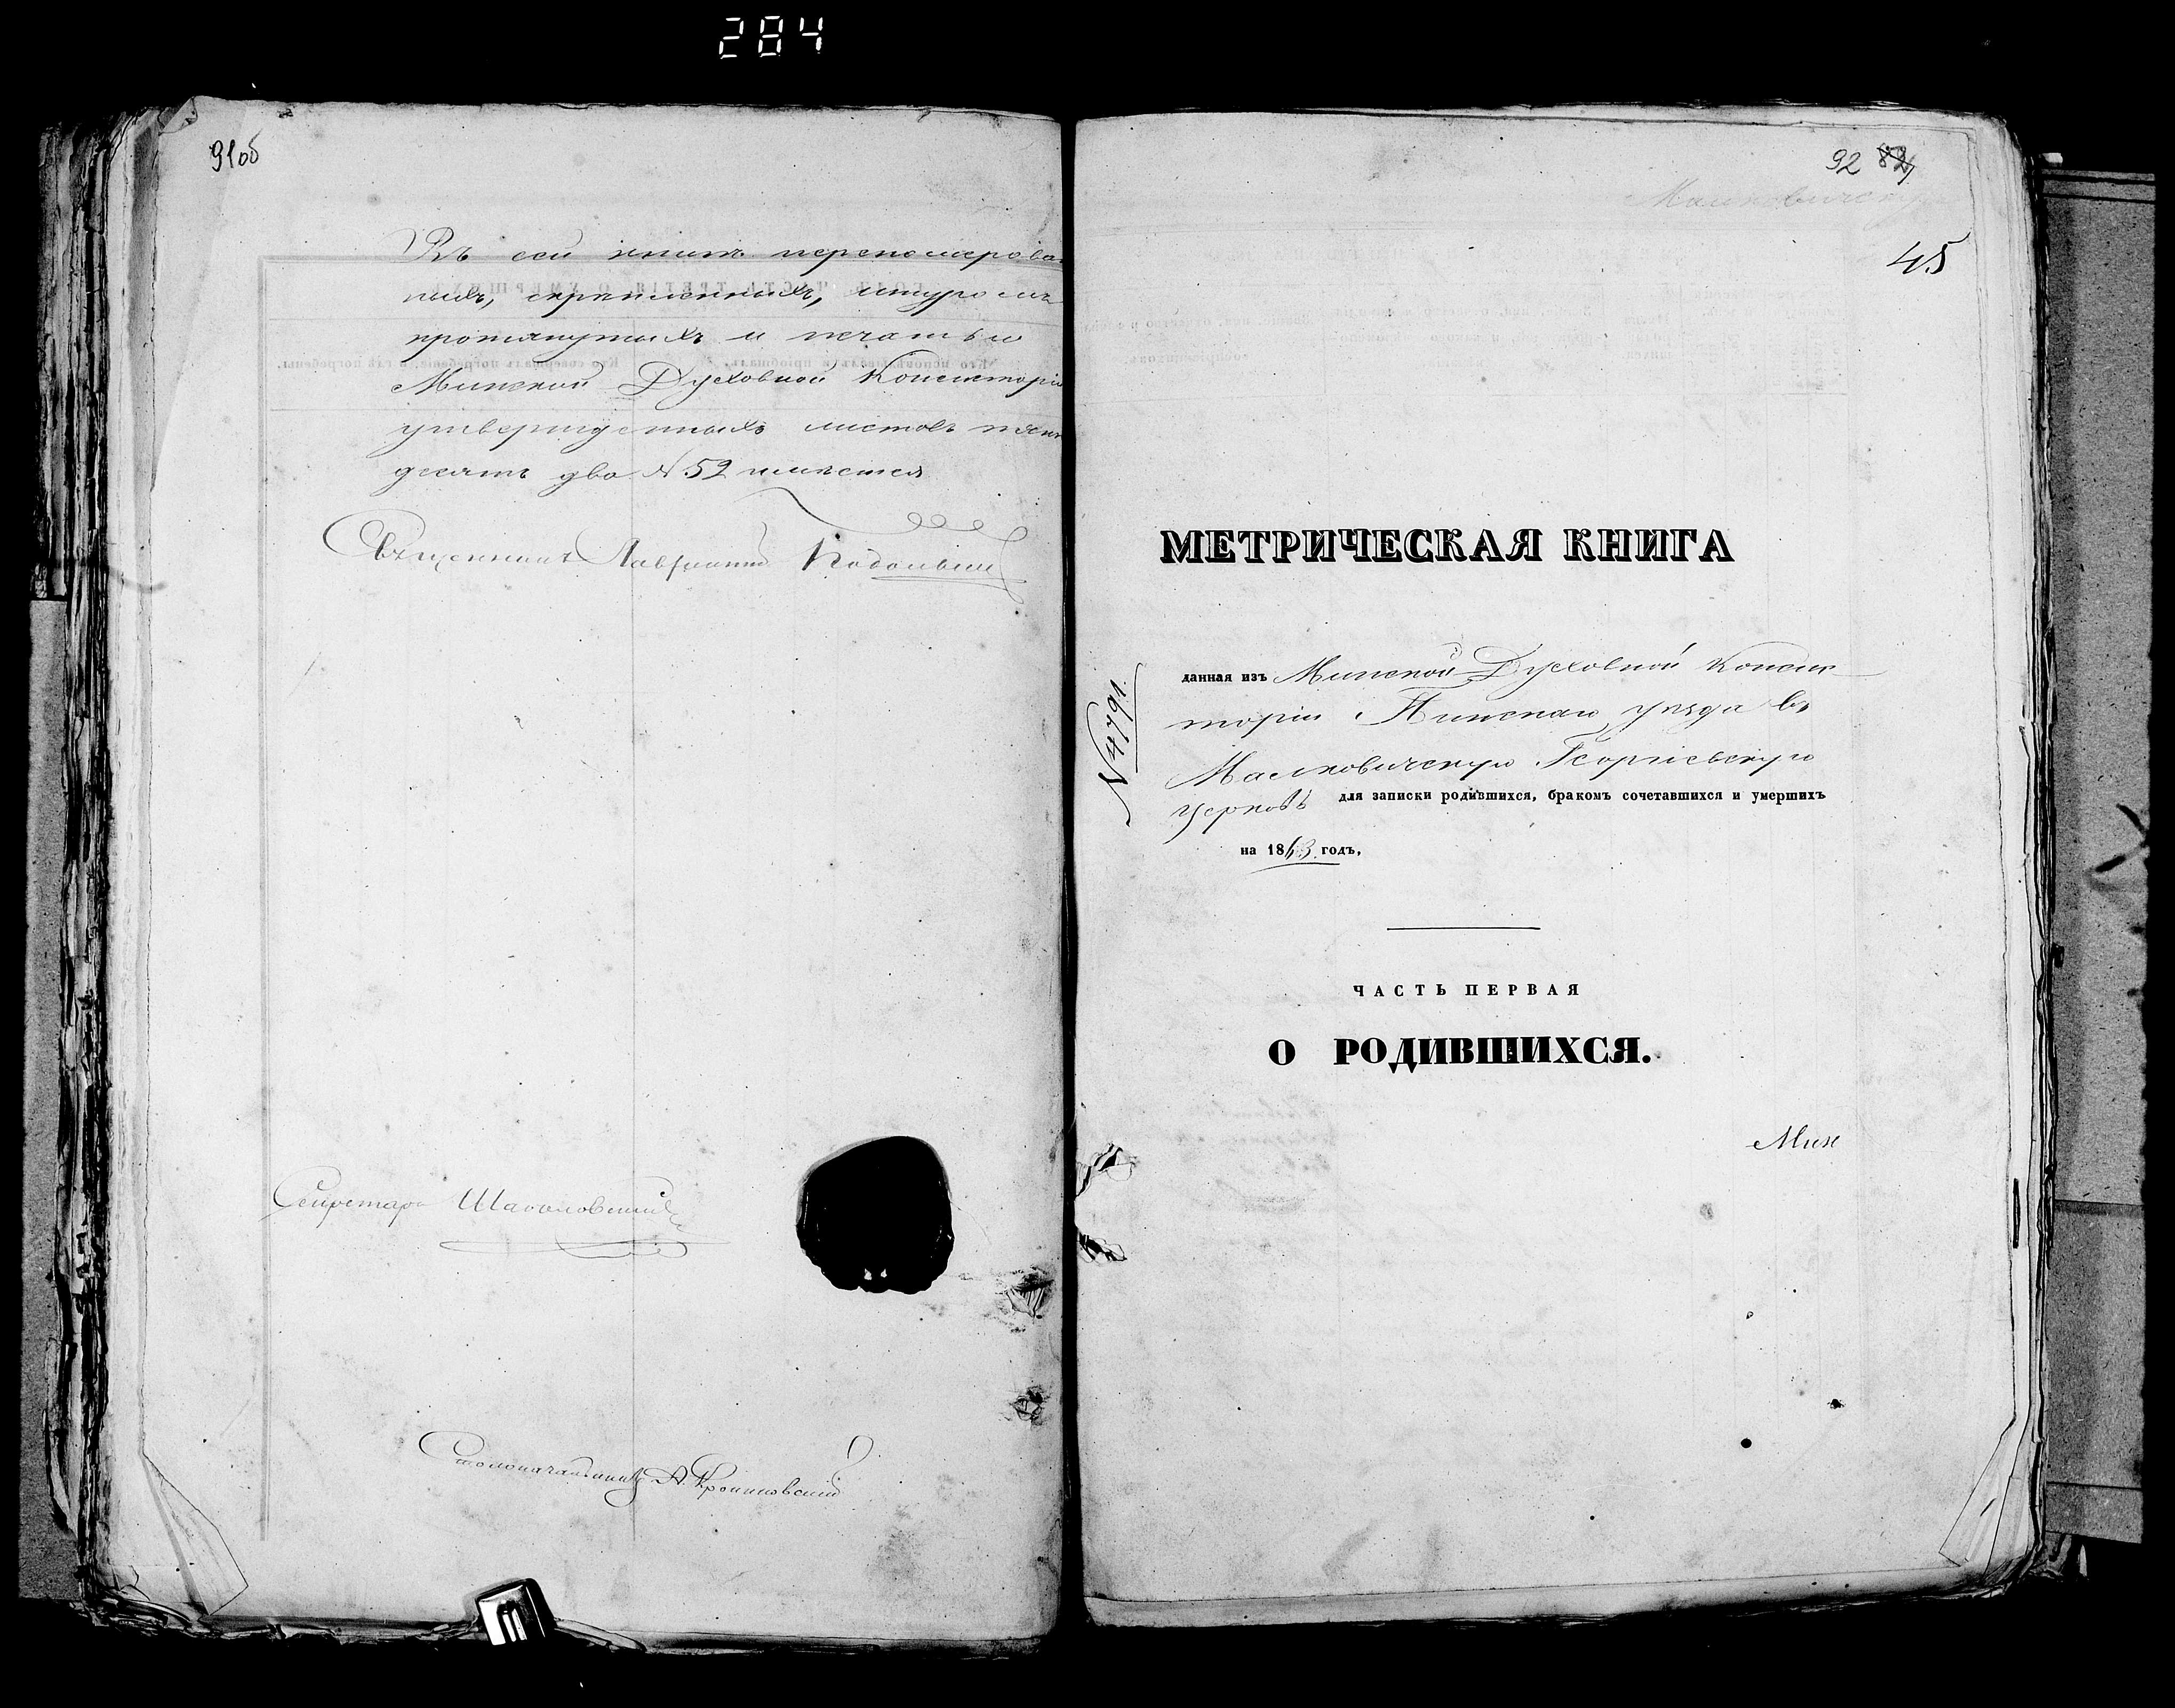 284
91об
Въ сей книгѣ перенумерован
ныхъ, скрѣпленныхъ, шнуромъ
протянутыхъ и печатью
Минской Духовной Консисторіи
утвержденныхъ листовъ пять
десятъ два N 52 имѣется
Священникъ Лаврентій
Секретарь
Столоначальникъ А.
92 82
45
МЕТРИЧЕСКАЯ КНИГА
N 4791.
данная изъ Минской Духовной Консис
торіи Пинскаго уѣзда въ
Малковичскую Георгіевскую
церковь для записки родившихся, бракомъ сочетавшихся и умершихъ
на 1863 годъ,
ЧАСТЬ ПЕРВАЯ
О РОДИВШИХСЯ.
Мин